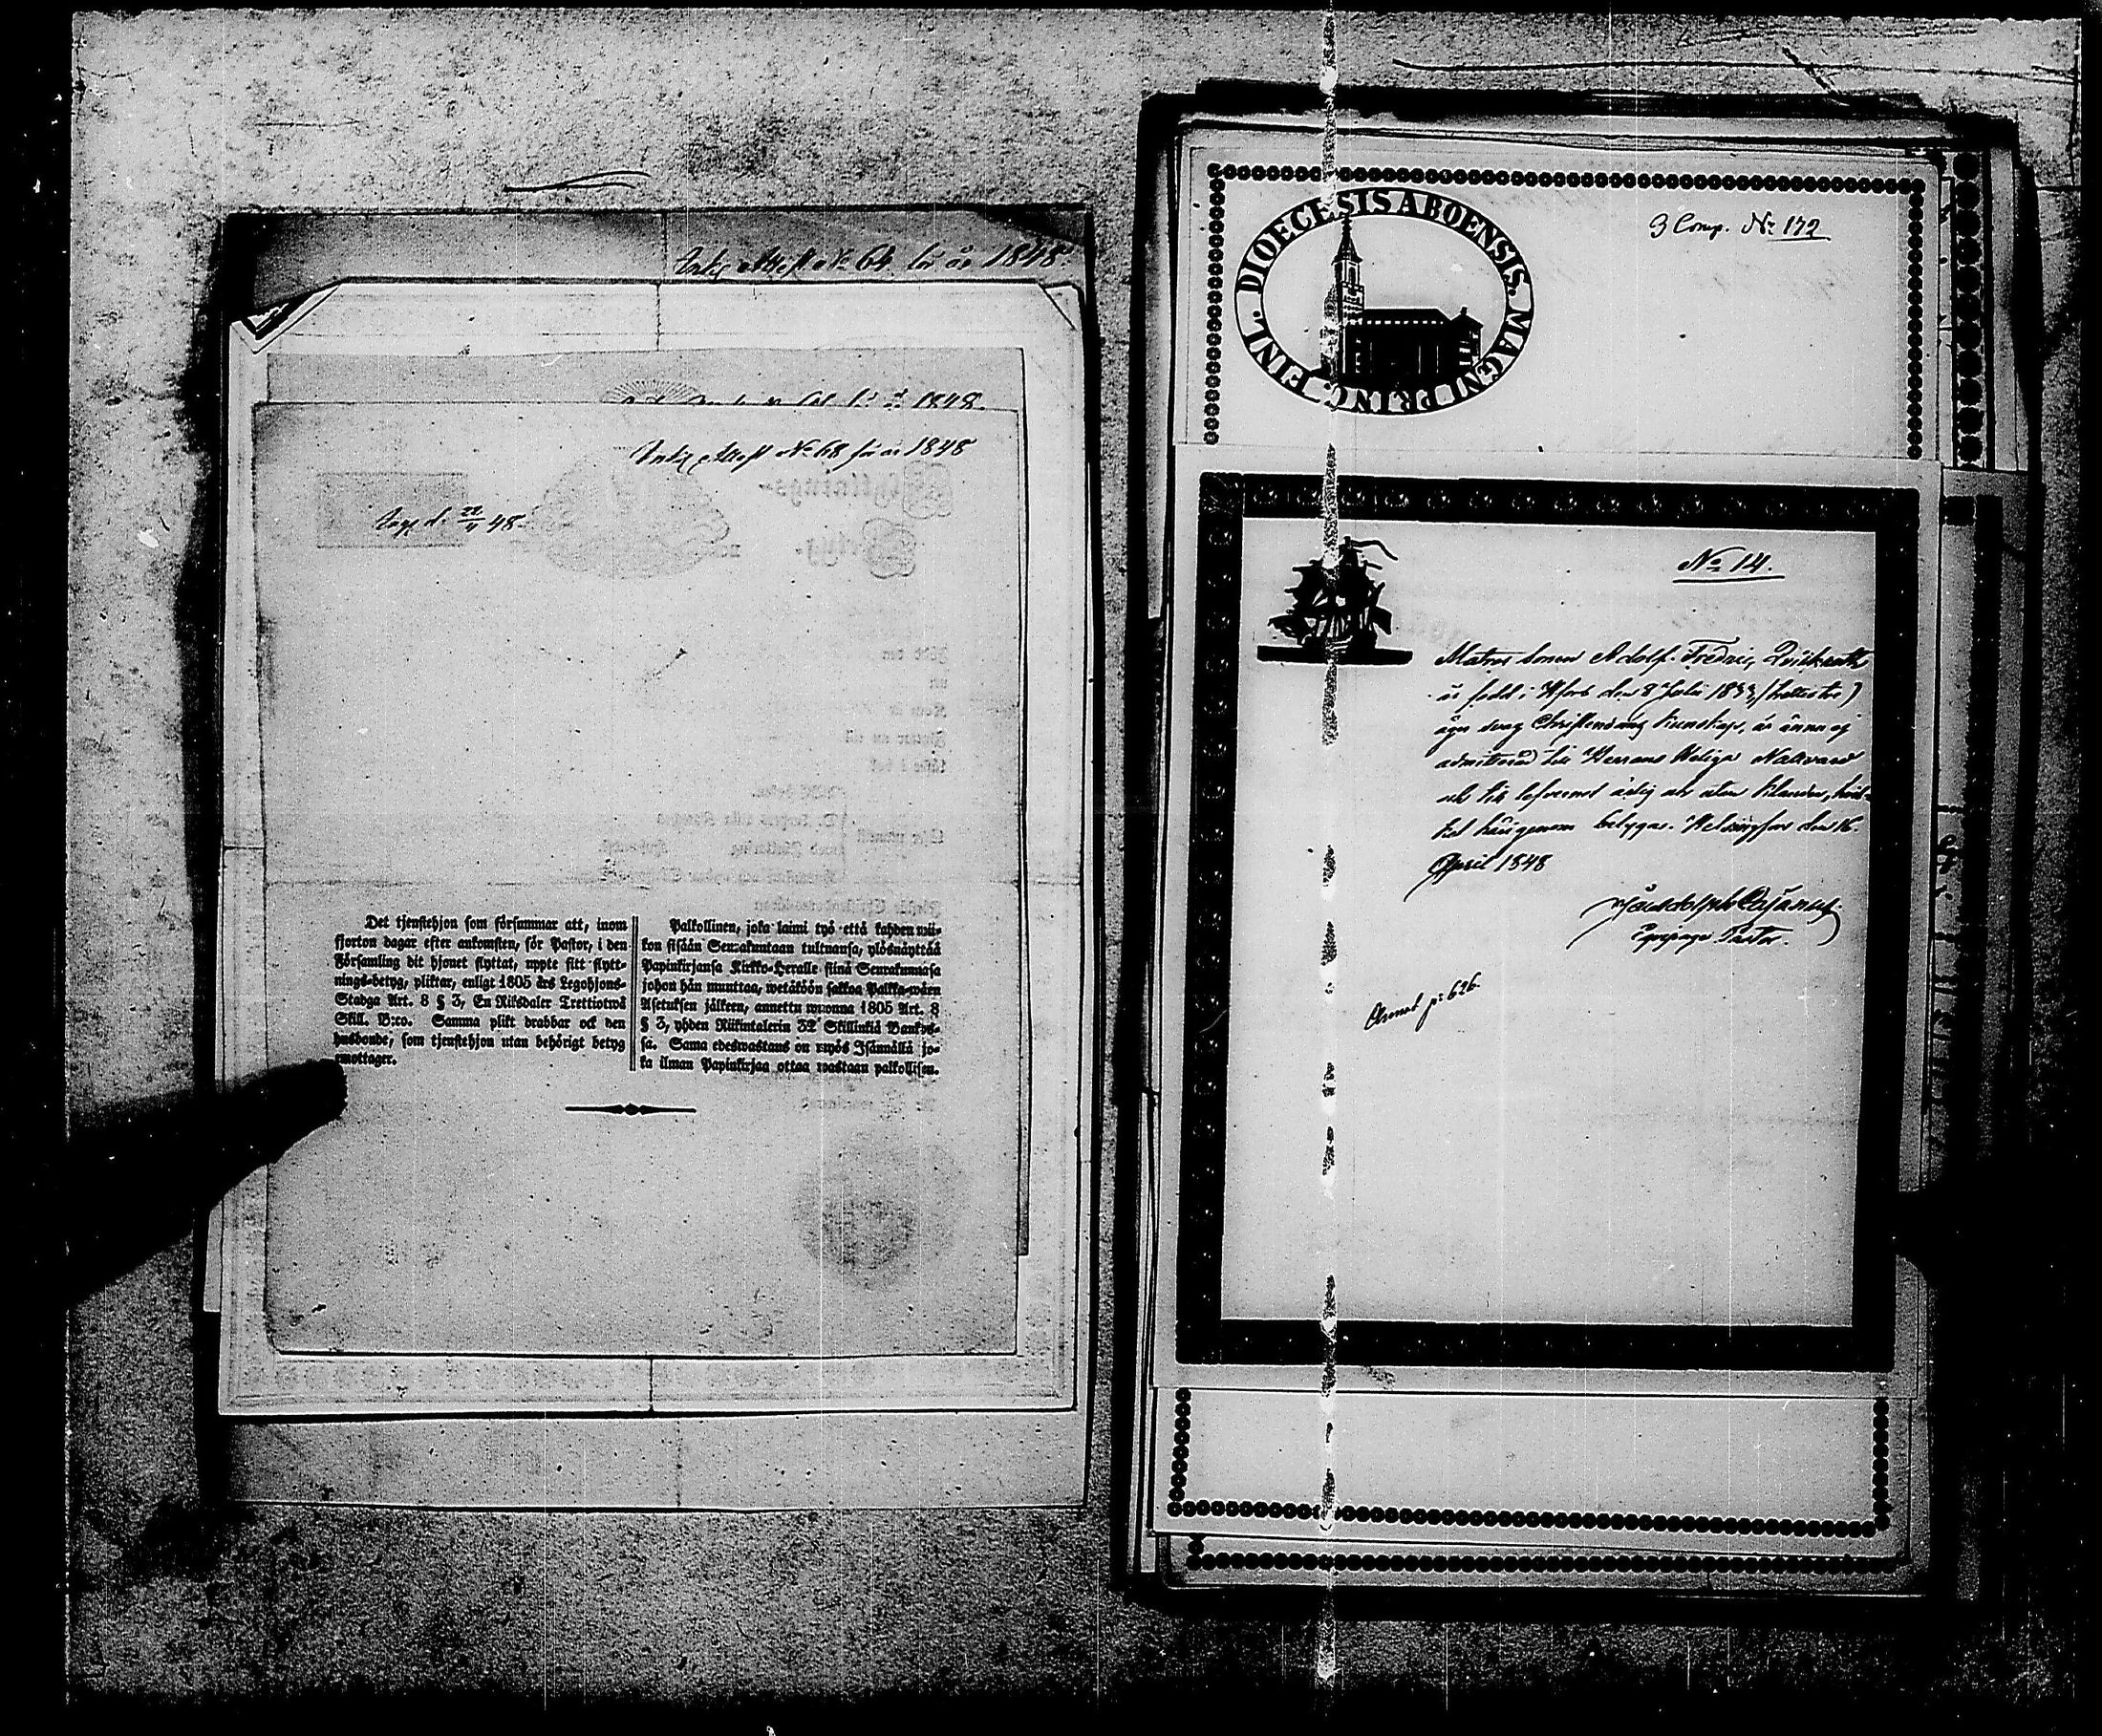 Attest No 64 för år 1848.
Attest No 68 för år 1848
d. 22/4 48.
Det tjenstehjon som försummar att, inom
fjorton dagar efter ankomsten, för Pastor, i den
Församling dit hjonet flyttat, uppte sitt flytt-
nings-betyg, pliktar, enligt 1805 års Legohjons-
Stadga Art. 8 § 3, En Riksdaler Trettiotwå
Skill. B:co. Samma plikt drabbar ock den
husbonde, som tjenstehjon utan behörigt betyg
emottager.
Palkollinen, joka laimi lyö että kahden wii-
kon sisään Seurakuntaan tultuansa, ylösnäyttää
Papinkirjansa Kirkko-Herralle siinä Seurakunnasa
johon hän muuttaa, wetäköön sakkoa Palkka-wäen
Asetuksen jälkeen, annettu wuonna 1805 Art. 8
§ 3, yhden Riikintalerin 32 Skillinkiä Bankos-
sa. Sama edeswastaus on myös Isännällä jo-
ka ilman Papinkirjaa ottaa wastaan palkollisen.
DIOECESIS ABOENSIS. MAGNI PRINC. FINL.
3 Comp. No 172
No 14.
Matros sonen Adolf Fredric
är född i Hfors den 8 Julii 1833,
äger swag Christendoms kunskap, är ännu ej
admitterad till Herrans Heliga Nattvard
och till lefvernet ärlig och utan klander, hvil-
ket härigenom betygas. Helsingfors den 16.
April 1848
Cajanus
Equipage Pastor.
p: 626.